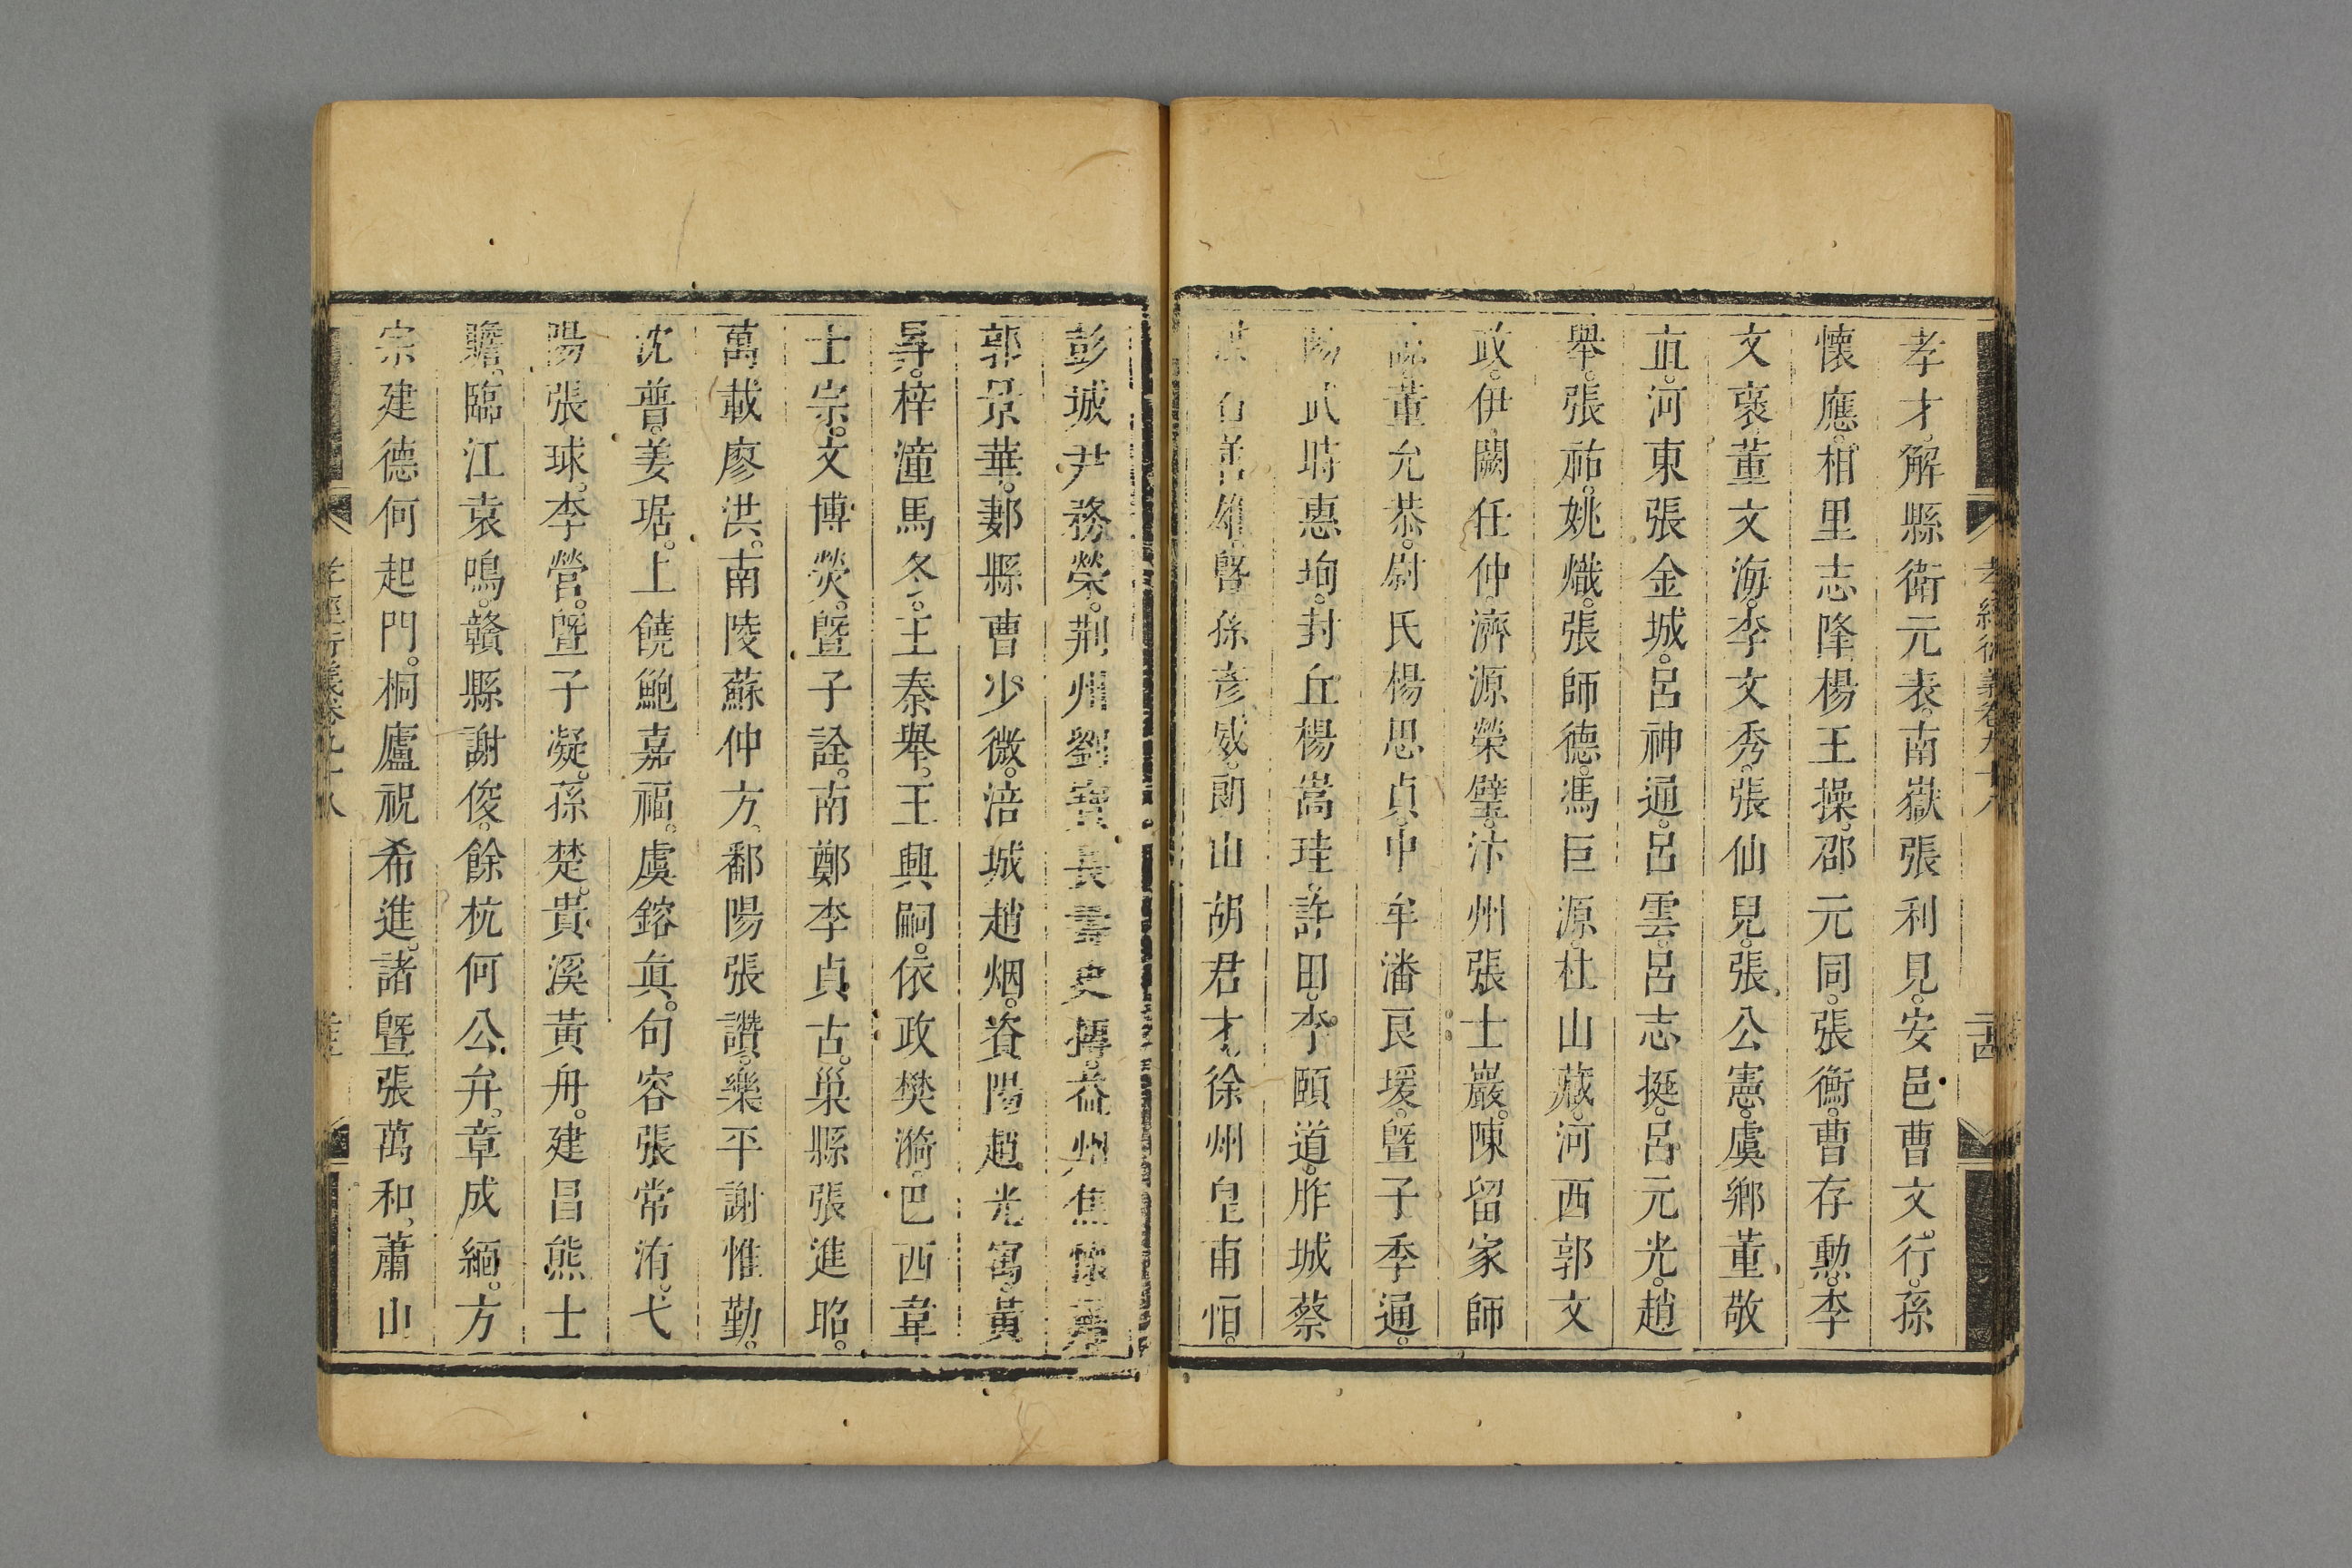 孝才。解縣衛元表。南嶽張利見。安邑曹文。行。孫
懷應。相里志隆楊王操。邵元同。張衡。曹存勲。李
文褒。董文海。李文秀。張仙兒。張公憲。虞鄉董敬
直。河東張金城。呂神通。呂雲。呂志挺。呂元光。趙
舉。張祐。姚熾。張師德。馮巨源。杜山藏。河西郭文
政。伊闕任仲。濟源榮璧。汴州張士巖。陳留家師
諒。董允恭。尉氏楊思貞。中牟潘良瑗。曁子季通。
陽武時惠珣。封丘楊嵩珪。許田。李頤道。胙城蔡
洪。善雄。曁孫彥威。朗山胡君才。徐州皇甫恒。
彭城尹務榮。荆州劉寶。長壽史摶。益州焦懷肅
郭景華。郪縣曹少微。涪城趙烟。資陽趙光寓。黃
昪。梓潼馬冬。王秦舉。王興嗣。依政樊漪。巴西韋
士宗。文博熒。曁子詮。南鄭李貞古。巢縣張進昭。
萬載廖洪。南陵蘇仲方。鄱陽張讚。樂平謝惟勤。
沈普。姜琚。上饒鮑嘉福。虞鎔眞。句容張常洧。弋
陽張球。李營。曁子凝。孫楚。貴溪黃舟。建昌熊士
贍。臨江袁鳴。贛縣謝俊。餘杭何公弁。章成緬。方
宗建德何起門。桐廬祝希進。諸曁張萬和。蕭山
孝經衍義卷九十八
二十四